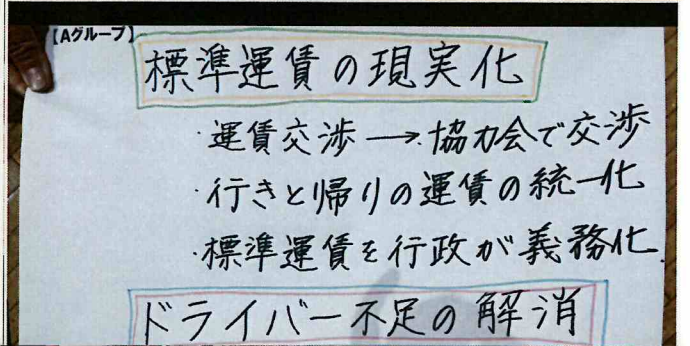 【Aグループ】
標準運賃の現実化
・運賃交渉→協力会で交渉
・行きと帰りの運賃の統一化
・標準運賃を行政が義務化
ドライバー不足の解消